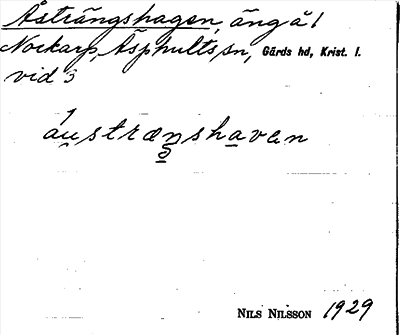 Åsträngshagen, äng å 1
Norkarp, Äsphults sn, Gärds hd, Krist. l.
vid 3
áustrænshavan
NILS NILSSON 1929